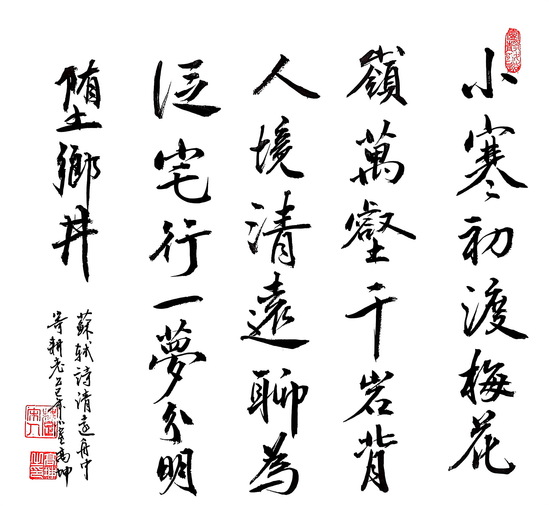 小寒初渡梅花
嶺萬壑千岩背
人境清遠聊為
泛宅行一夢分明
堕鄉井
蘇軾詩清遠舟中
寄耕老乙巳年高坤